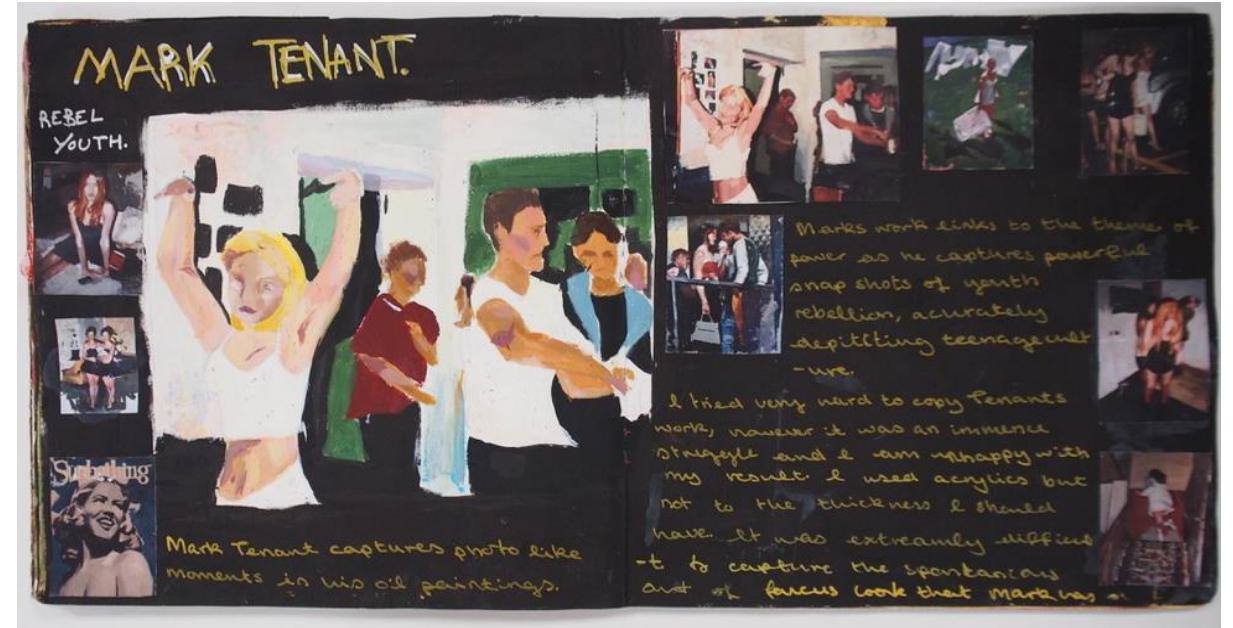 MARK TENANT.
REBEL
YOUTH.
Sunbathing
Mark Tenant captures photo like
moments in his oil paintings.
Marks work links to the theme of
power as he captures powerful
snap shots of youth
rebellion, acurately
depitcting teenage cult
-ure.
I tried very hard to copy Tenants
work, however it was an immence
struggle and I am unhappy with
my result. I used acrylics but
not to the thickness I should
have. It was extreamly difficul
-t to capture the spontanious
out of foucus look that Mark has